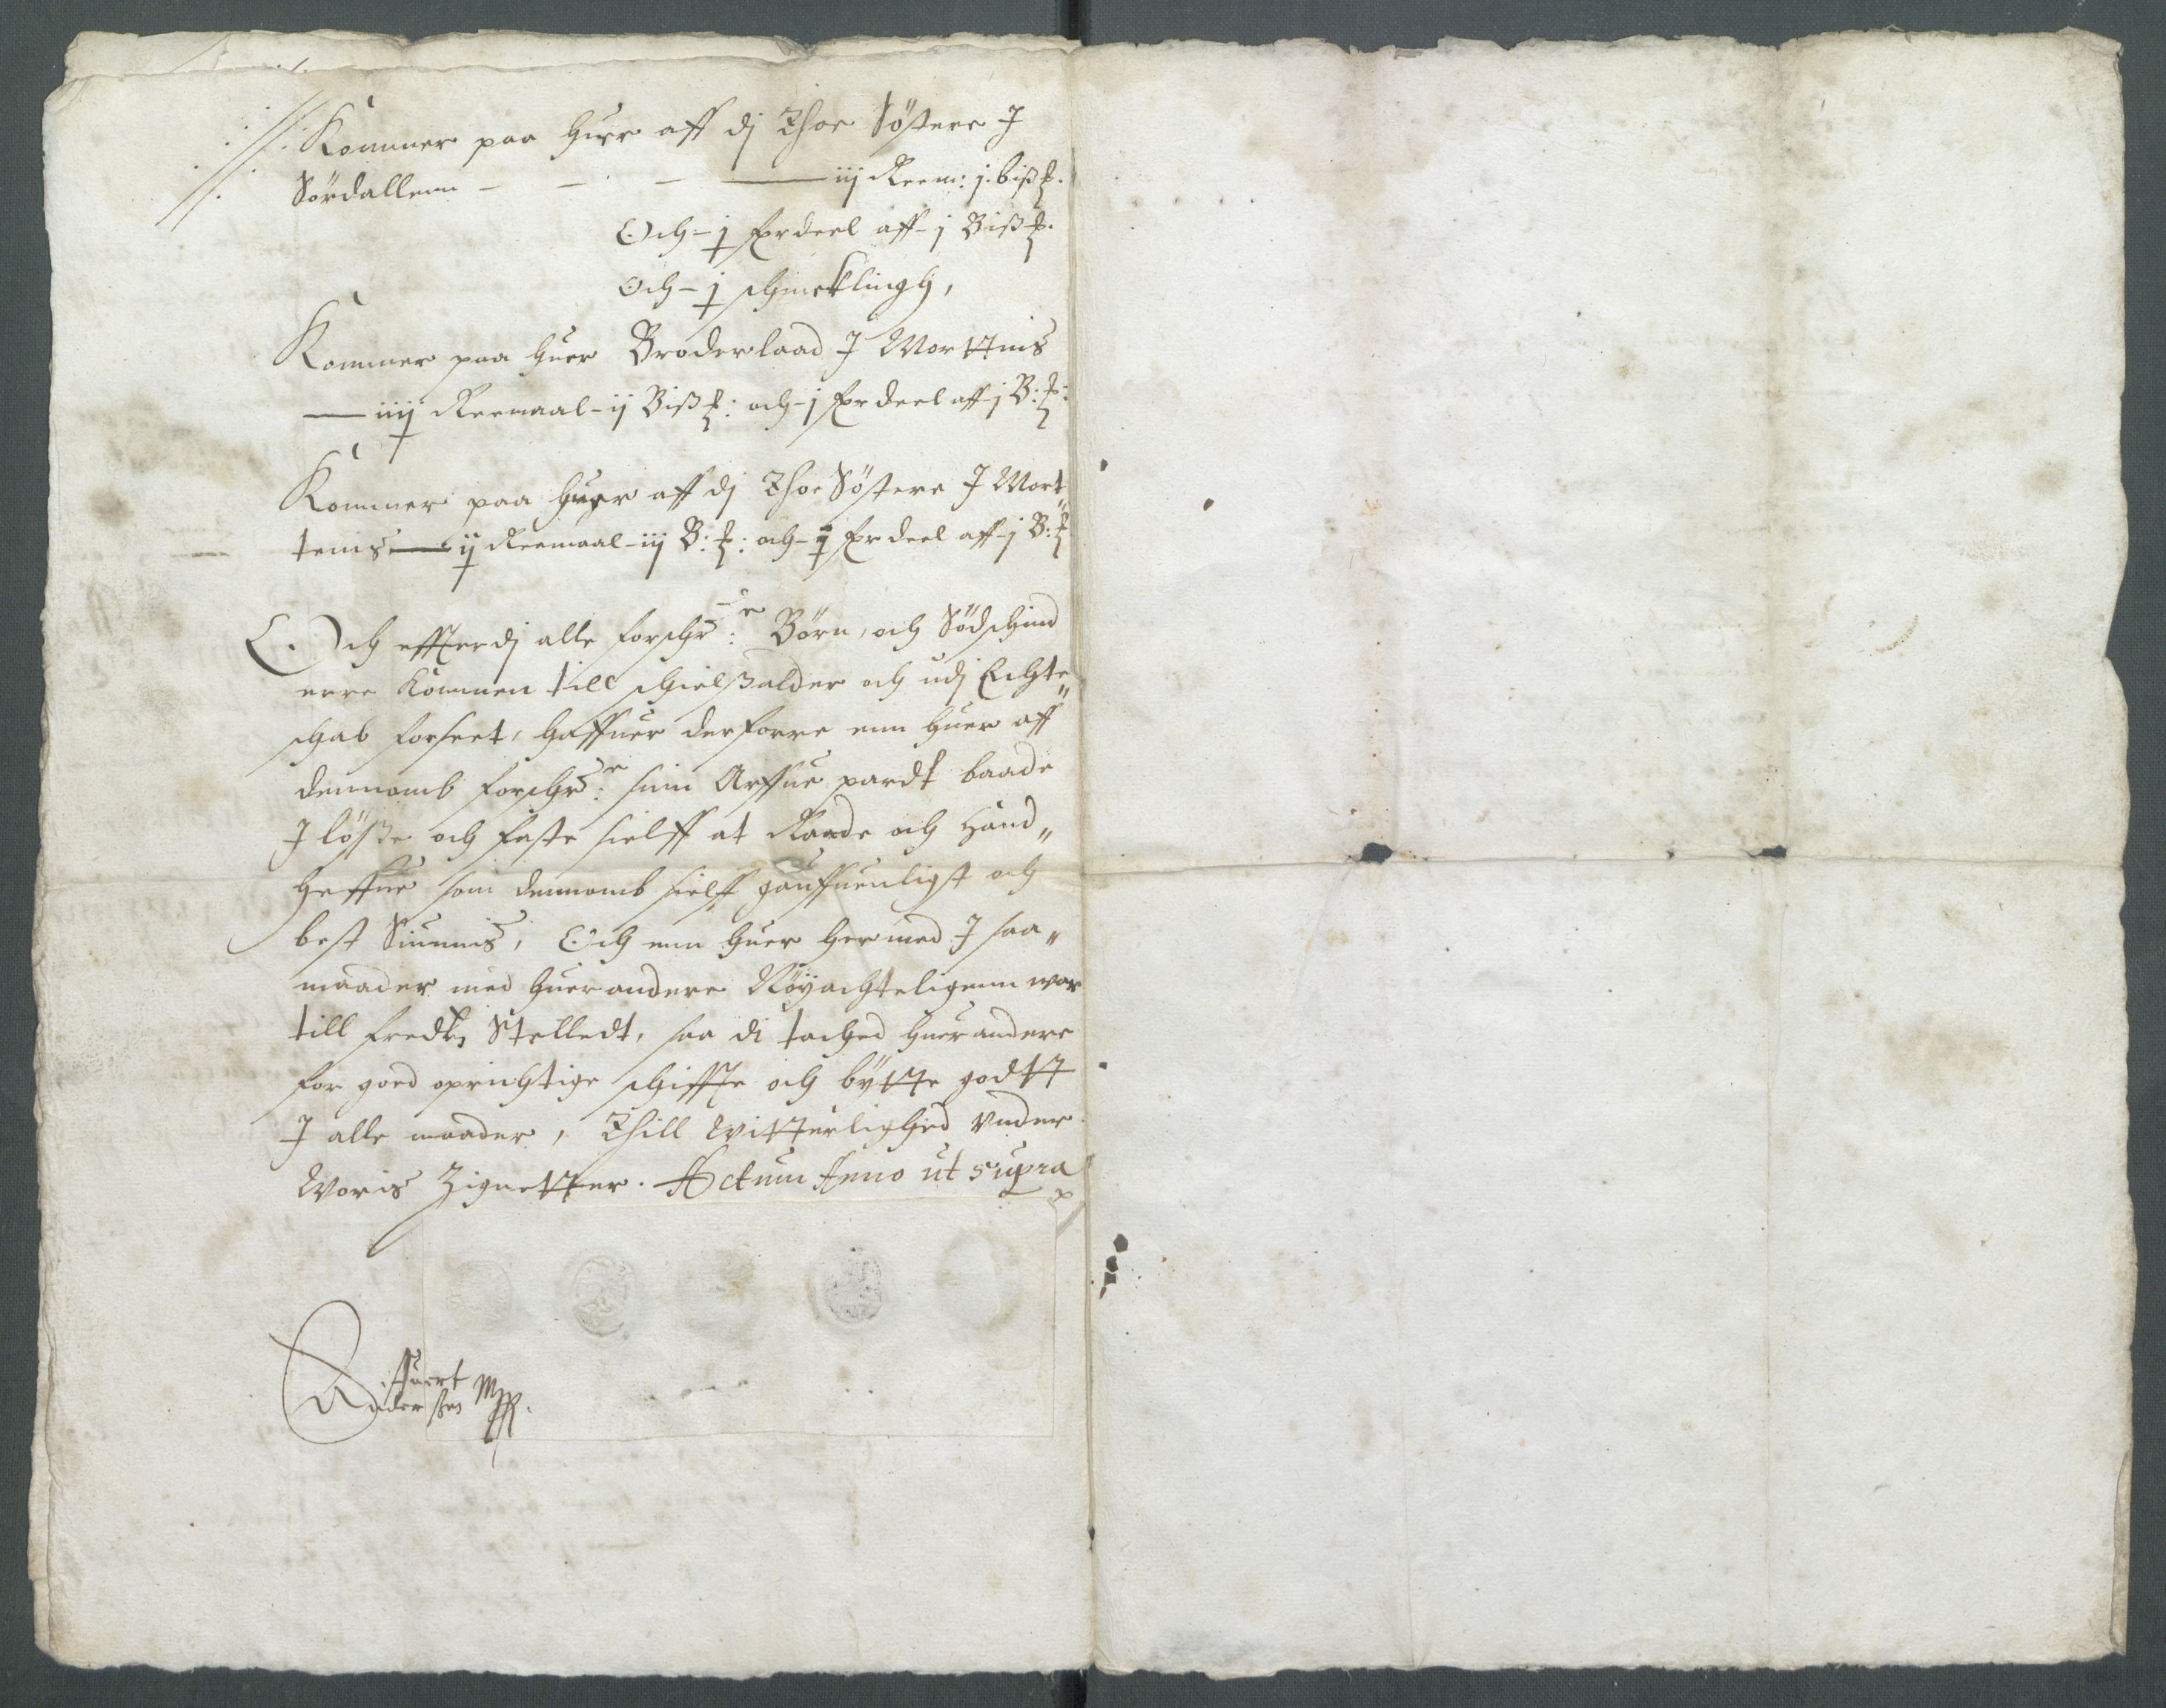 Kommer paa huer aff dj Thoe Söstere J
Sördallenn - - - iij Reem: j. biß ℔.
Och - j fierdeel aff - j Biß ℔.
Och - j schmeklingh,
Kommer paa huer Broderlaad J Morttens
— iiij Reemaal - ij Biß ℔: och - j fierdeel aff - j B: ℔:
Kommer paa huer aff dj Thoe Söstere J Mort„
tens — ij Reemaal - iij B: ℔: och - j fierdeel aff - j B: ℔
Och effterdj alle forschr:ne Börn, och Södschind
erre Kommen till schielßalder och udj Echte„
schab forseet, haffuer derforre enn huer aff
dennomb forschr:ne sinn Arffue pardt baade
J lösße och faste sielff at Raade och Hand„
heffue som dennomb sielff gauffnenligst och
best Siunnis, Och enn huer hermed J saa„
maader med huer andere Nöyachteligenn war
till fredtz Stelledt, saa di tached huer andere
for goed oprichtige schiffte och bÿtte godtt
J alle maader, Thill Witterlighed vnder
Woris Zignetter. Actum Anno ut supra
Siuert
Anderßen Mppr.